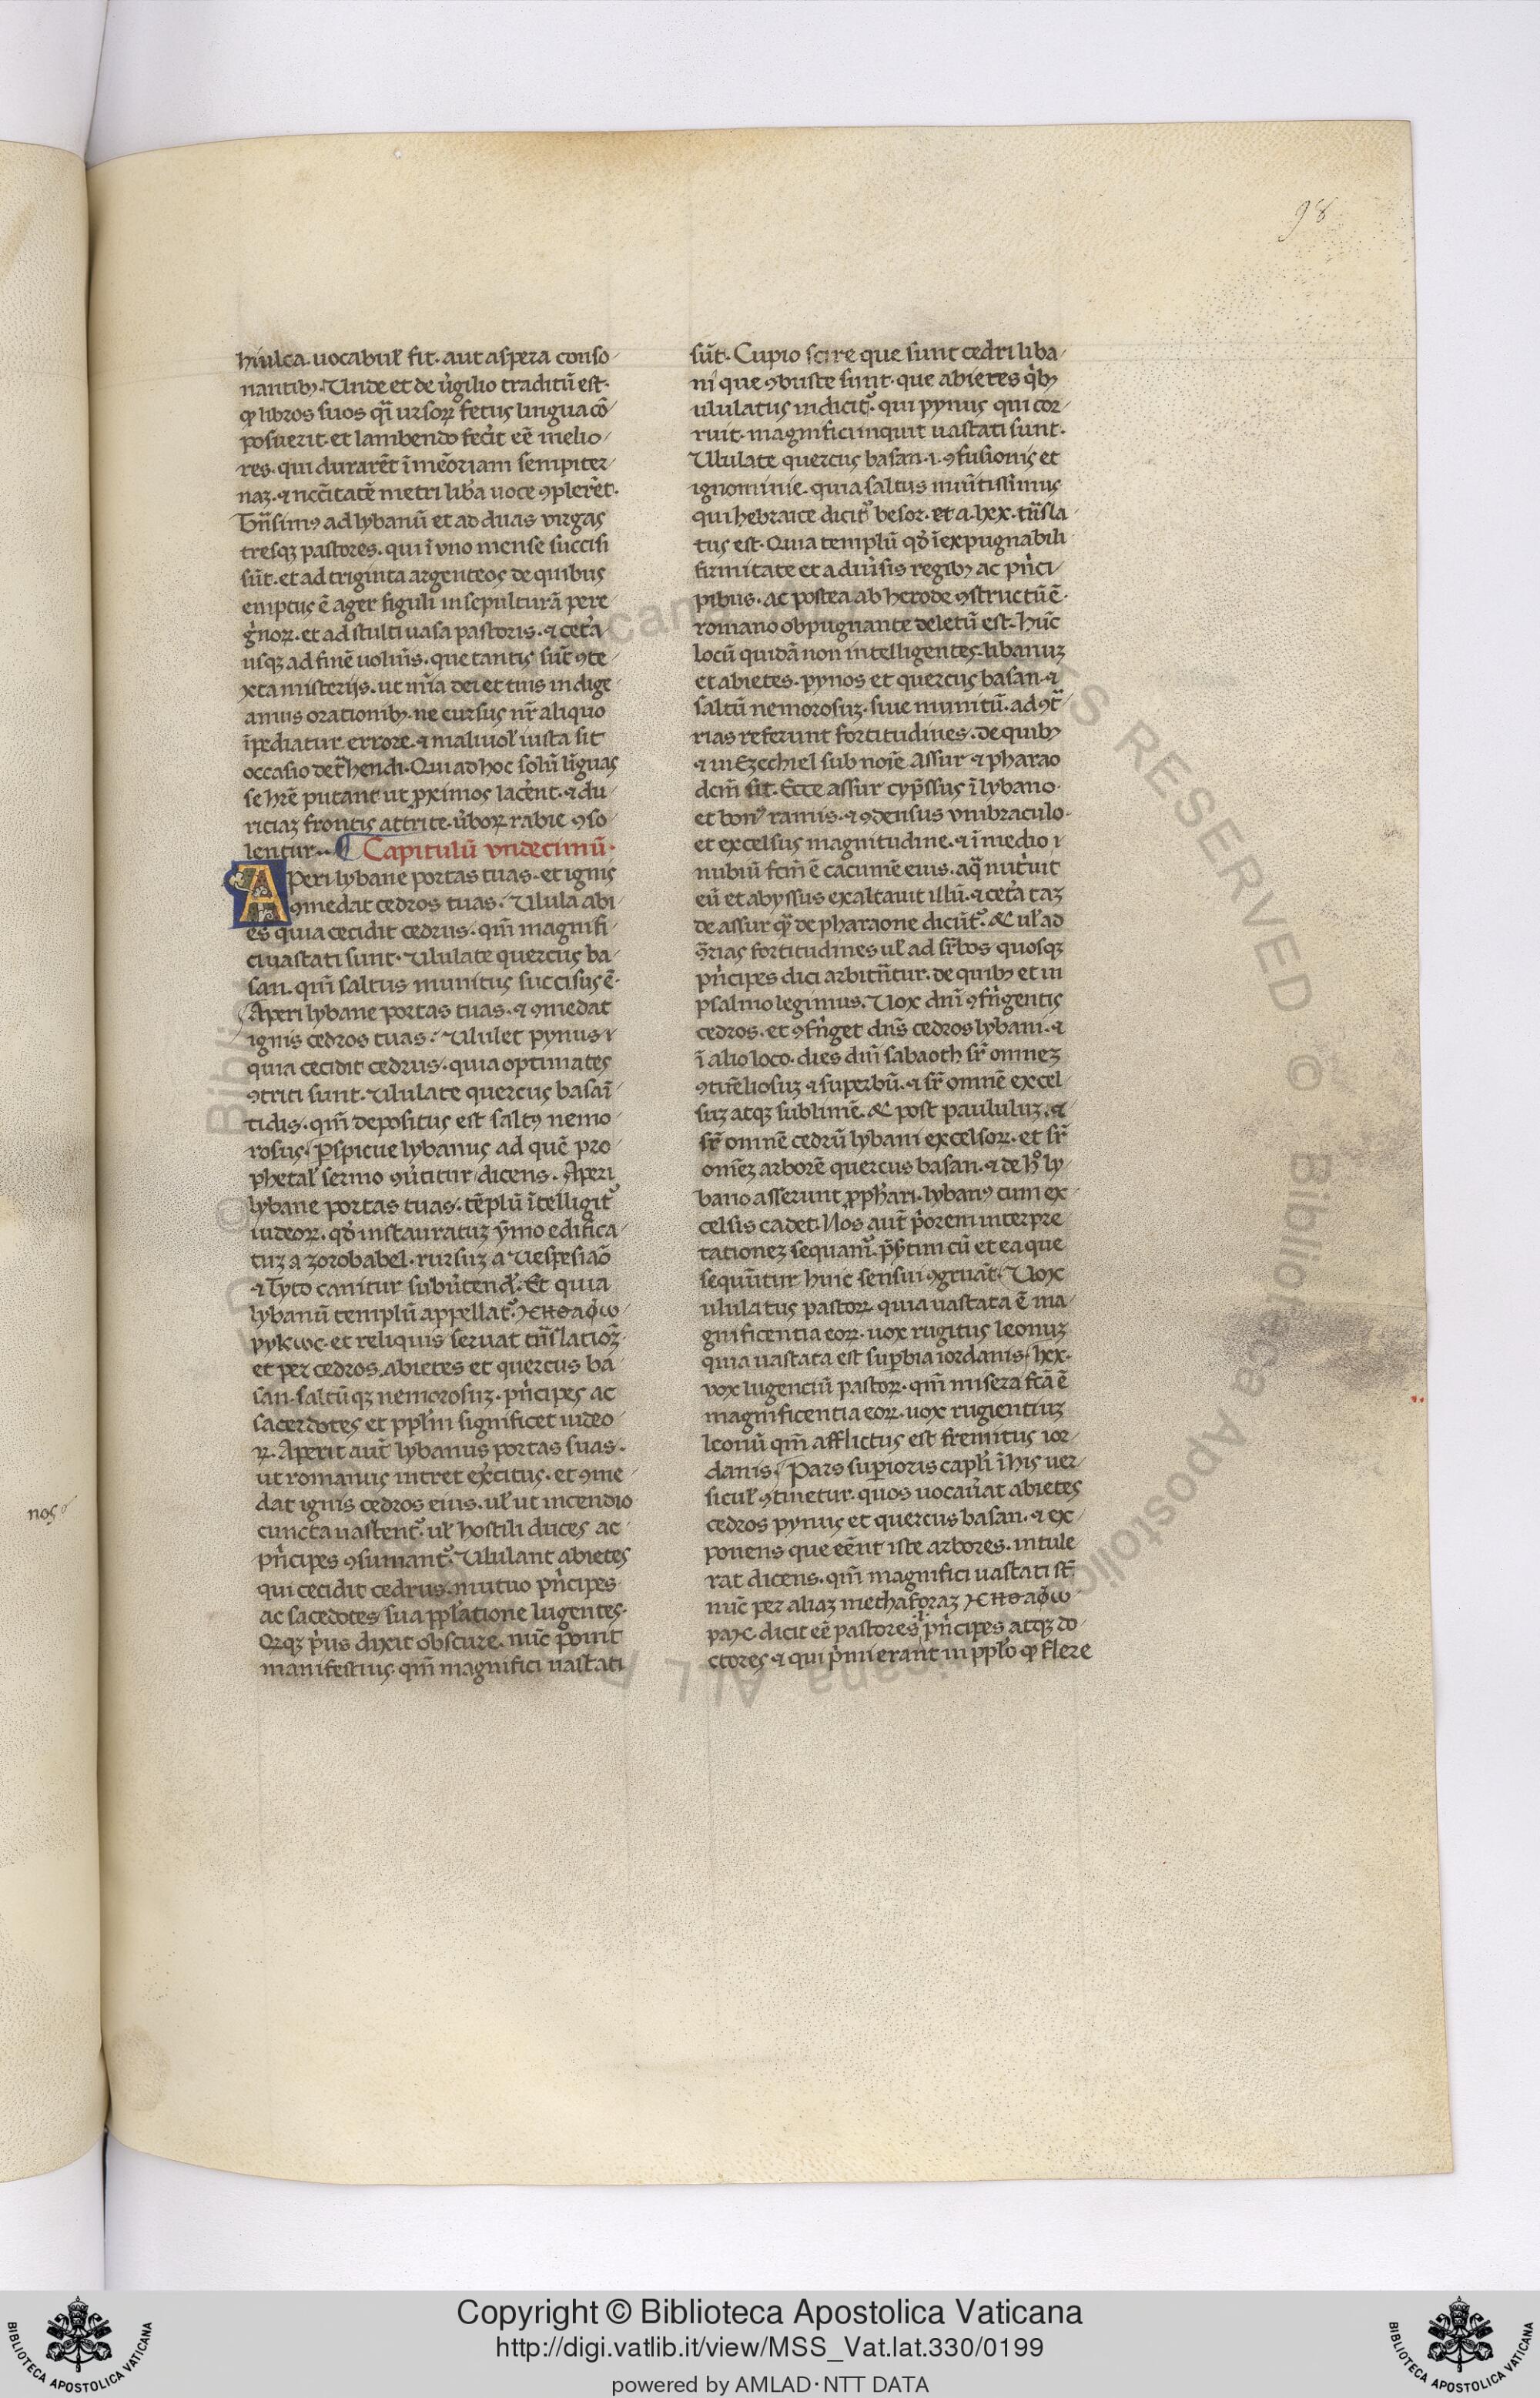 98
hiulca uocabul̃ sit. aut aspera conso
nantibꝯ. Unde et de ũgilio traditũ est.
ꝙ libros suos q̃i ursoꝝ fetus lingua cõ
posuerit. et lambendo fec̃it eẽ melio
res. qui durarẽt ĩ mẽoriam sempiter
naꝫ. ⁊ nccĩtatẽ metri lib̃a uoce ꝯplerẽt.
T̃nsimꝰ ad lybanũ et ad duas virgas
tresqꝫ pastores. qui ĩ vno mense succisi
sũt. et ad triginta argenteos de quibus
emptus ẽ ager figuli in sepulturã pere
g̃noꝝ. et ad stulti uasa pastoris. ⁊ cet̃a
usqꝫ ad finẽ uolũis. que tantis sũt ꝯte
xta misterijs. ut mĩa dei et tuis indige
amus orationibꝯ. ne cursus nr̃ aliquo
ĩpediatur errore. ⁊ maliuol̃ iusta sit
occasio det̃hendi. Qui ad hoc solũ lĩguas
se hr̃e putant ut ꝓximos lacẽnt. ⁊ du
ritiaꝫ frontis attrite. ũboꝝ rabie ꝯso
lentur. ¶ Capitulũ vndecimũ.
APeri lybane portas tuas. et ignis
ꝯmedat cedros tuas. Ulula abi
es quia cecidit cedrus. qm̃ magnifi
ci uastati sunt. Ululate quercus ba
san. qm̃ saltus munitus succisus ẽ.
Aperi lybane portas tuas. ⁊ ꝯmedat
ignis cedros tuas. Ululet pynus
quia cecidit cedrus. quia optimates
ꝯtriti sunt. Ululate quercus basaĩ
tidis. qm̃ depositus est saltꝰ nemo
rosus. Ꝑspicue lybanus ad quẽ pro
phetal̃ sermo ꝯũtitur dicens. Aperi
lybane portas tuas. tẽplũ ĩtelligit᷑
iudeoꝝ. qð instauratuꝫ ỹmo edifica
tuꝫ a zorobabel. rursuꝫ a Uespesiaõ
⁊ Tyto canitur subũtenđ. Et quia
lybanũ templũ appellat᷑.
et reliquis seruat tñslatioꝫ
et per cedros. abietes et quercus ba
san. saltũqꝫ nemorosuꝫ. pñcipes ac
sacerdotes et ppl̃m significet iudeo
ꝝ. Aperit aut̃ lybanus portas suas.
ut romanus intret ex̃citus. et ꝯme
dat ignis cedros eius. ul̃ ut incendio
cuncta uastent᷑. ul̃ hostili duces ac
pñcipes ꝯsumant᷑. Ululant abietes
qui cecidit cedrus. mutuo pñcipes
ac sacedotes sua ppl̃atione lugentes.
Qꝛqꝫ p̃us dixit obscure. nũc ponit
manifestius. qm̃ magnifici uastati
sũt. Cupio scire que sunt cedri liba
ni que ꝯbuste sunt. que abietes q̃bꝯ
ululatus indicit᷑. qui pynus qui cor
ruit. magnifici inquit uastati sunt.
Ululate quercus basan. i. ꝯfusionis et
ignominie. quia saltus munĩtissimus
qui hebraice dicit᷑ besor. et a. hex. tñsla
tus est. Quia templũ qð ĩexpugnabili
firmitate et a diũsis regibꝯ ac pñci
pibus. ac postea ab herode ꝯstructũ ẽ.
romano obpugnante deletũ est. Hũc
locũ quidã non intelligentes. libanuꝫ
et abietes. pynos et quercus basan. ⁊
saltũ nemorosuꝫ. siue munitũ. ad ꝯt̃
rias referunt fortitudines. de quibꝯ
⁊ in Ezechiel sub noĩe Assur ⁊ pharao
dcm̃ sit. Ecce assur cyp̃ssus ĩ lybano.
et bonꝰ ramis. ⁊ ꝯdensus vmbraculo.
et excelsus magnitudine. ⁊ ĩ medio
nubiũ fcm̃ ẽ cacumẽ eius. aq̃ nutĩuit
eũ et abyssus exaltauit illũ. ⁊ cet̃a taꝫ
de assur q̃ de pharaone dicũt᷑. Ac ul̃ ad
ꝯ̃rias fortitudines ul̃ ad sr̃bos quosqꝫ
pñcipes dici arbitrñtur. de quibꝯ et in
psalmo legimus. Vox dnĩ ꝯfrĩgentis
cedros. et ꝯfrĩget dns̃ cedros lybani. ⁊
ĩ alio loco. dies dnĩ sabaoth sr̃ omneꝫ
ꝯtũeliosuꝫ ⁊ superbũ. ⁊ sr̃ omnẽ excel
suꝫ atqꝫ sublimẽ. Ac post paululuꝫ. ⁊
sr̃ omnẽ cedrũ lybani excelsoꝝ. et sr̃
omẽꝫ arborẽ quercus basan. ⁊ de h̊ ly
bano asserunt ꝓpħari. lybanꝰ cum ex
celsis cadet. Nos aut̃ p̃orem interpre
tationeꝫ sequam᷑. p̃sĩtim cũ et ea que
sequũtur huic sensui ꝯgruãt. Vox
ululatus pastoꝝ quia uastata ẽ ma
gnificentia eoꝝ. uox rugitus leonuꝫ
quia uastata est suꝑbia iordanis. hex.
vox lugenciũ pastoꝝ. qm̃ misera fcã ẽ
magnificentia eoꝝ. uox rugientiuꝫ
leonũ qm̃ afflictus est fremitus ior
danis. Pars superioris capl̃i ĩ his uer
sicul̃ ꝯtinetur. quos uocaũat abietes
cedros pynus et quercus basan. ⁊ ex
ponens que eẽnt iste arbores. intule
rat dicens. qm̃ magnifici uastati st̃
nũc per aliaꝫ methaforaꝫ
dicit eẽ pastores pñcipes atqꝫ do
ctores. ⁊ qui p̃mi erant in ppl̃o ꝙ flere
nos
Copyright © Biblioteca Apostolica Vaticana
http://digi.vatlib.it/view/MSS_Vat.lat.330/0199
powered by AMLAD·NTT DATA
BIBLIOTECA APOSTOLICA VATICANA
BIBLIOTECA APOSTOLICA VATICANA